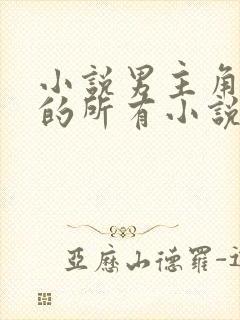 小說男主角
的所有小說
亞歷山德羅-